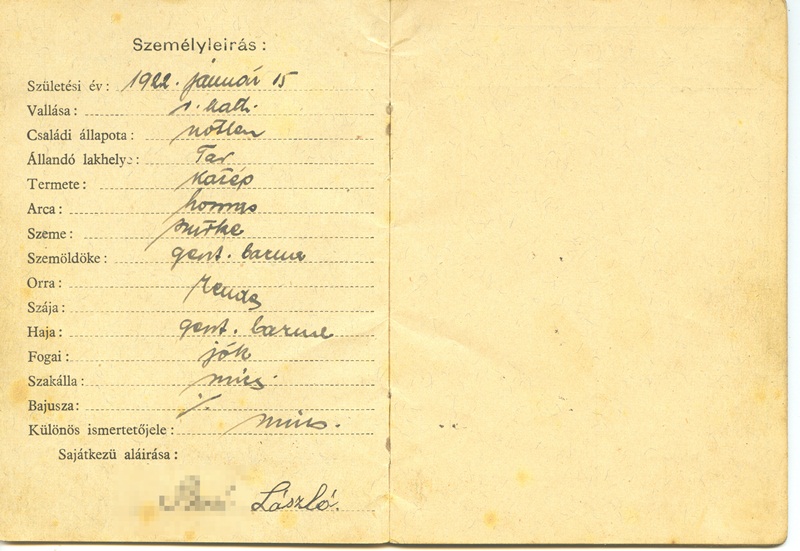 Személyleirás:
Születési év: 1922. január 15
Vallása: r. kath.
Családi állapota: nőtlen
Állandó lakhelye: Tar
Termete: közép
Arca: hosszas
Szeme: szürke
Szemöldöke: geszt. barna
Orra:
Szája: rendes
Haja: geszt. barna
Fogai: jók
Szakálla: nincs
Bajusza: "/.
Különös ismertetőjele: nincs.
Sajátkezű aláirása:
László.